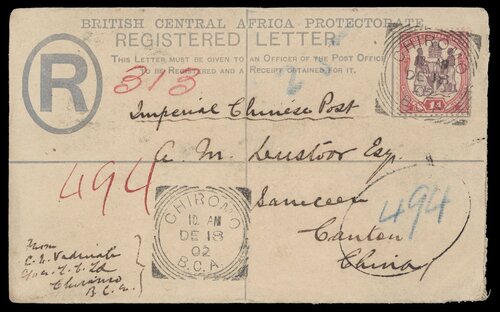 BRITISH CENTRAL AFRICA PROTECTORATE.
REGISTERED LETTER.
THIS LETTER MUST BE GIVEN TO AN OFFICER OF THE POST OFFICE
TO BE REGISTERED AND A RECEIPT OBTAINED FOR IT.
R
313
CHIROMO
AM
DE 18
02
B.C.A.
Imperial Chinese Post
A. M. Esq.
494
Canton
China
494
CHIROMO
10 AM
DE 18
02
B.C.A.
From
Chiromo
B.C.A.